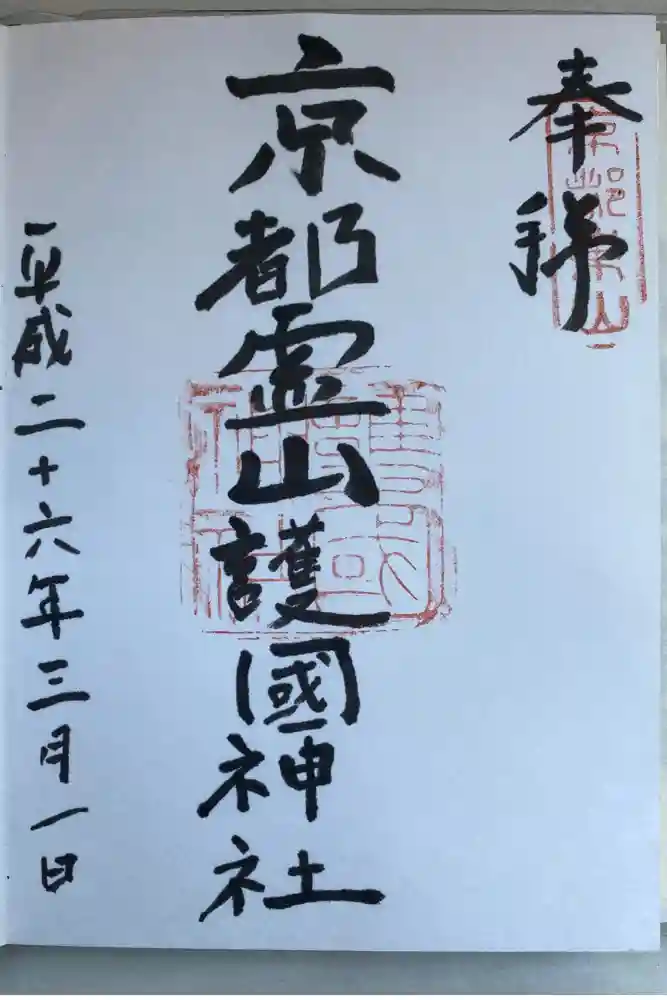 奉拝
京都霊山護國神社
平成二十六年三月一日